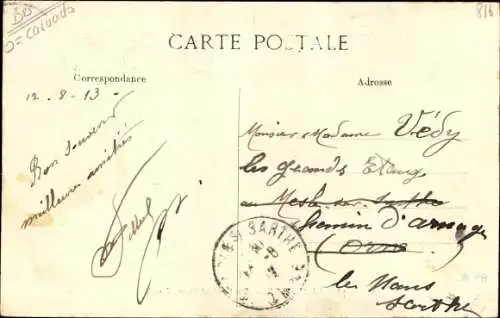 D = Calvados
CARTE POSTALE
Correspondance
Adresse
12-8-13
Monsieur & Madame Védy
les grands Etang
au Mesle-sur-Sarthe
Chemin d'arnage
(Orne)
le Mans
Sarthe
Bon souvenir
meilleures amitiés
SARTHE